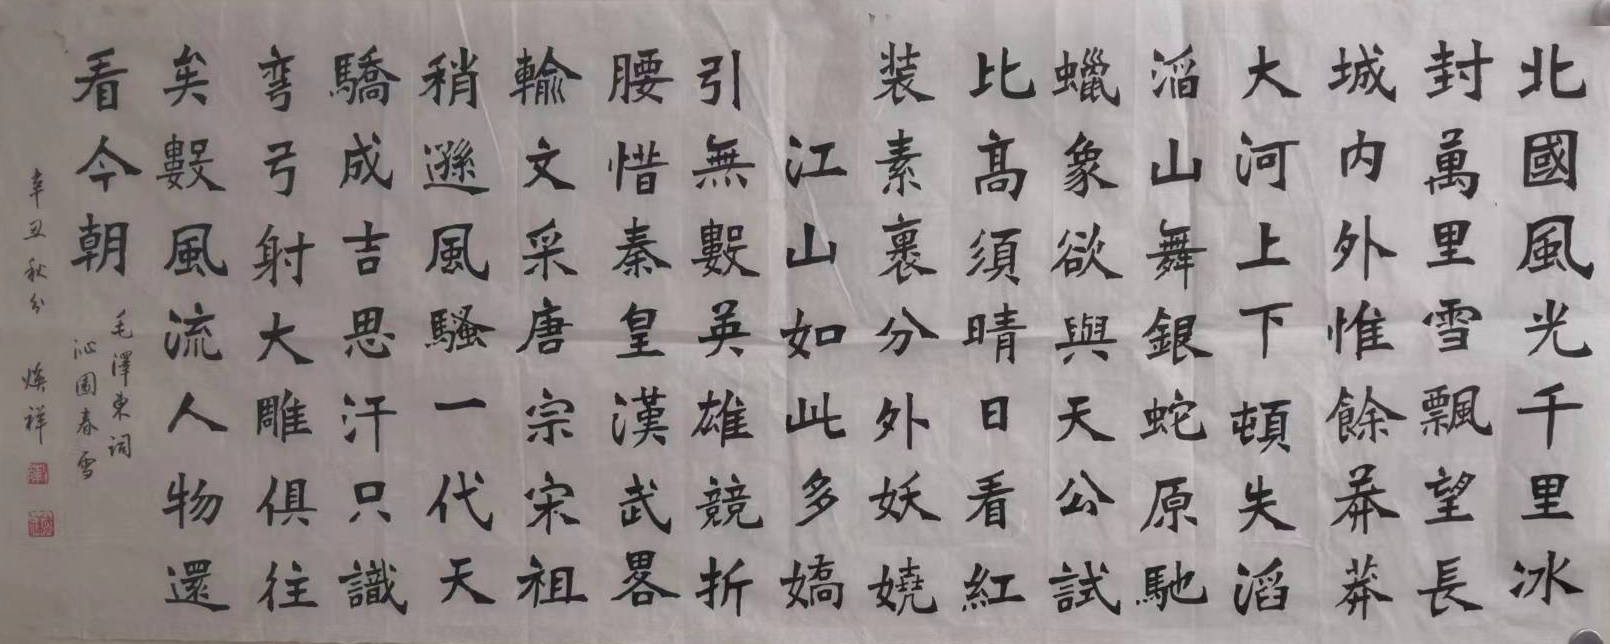 北國風光千里冰
封萬里雪飄望長
城内外惟餘莽莽
大河上下頓失滔
滔山舞銀蛇原馳
蠟象欲與天公試
比髙須晴日看紅
装素裹分外妖嬈
江山如此多嬌
引無數英雄競折
腰惜秦皇漢武畧
輸文采唐宗宋祖
稍遜風騷一代天
驕成吉思汗只識
弯弓射大雕俱往
矣數風流人物還
看今朝
毛澤東詞
沁園春雪
辛丑秋分 煥祥